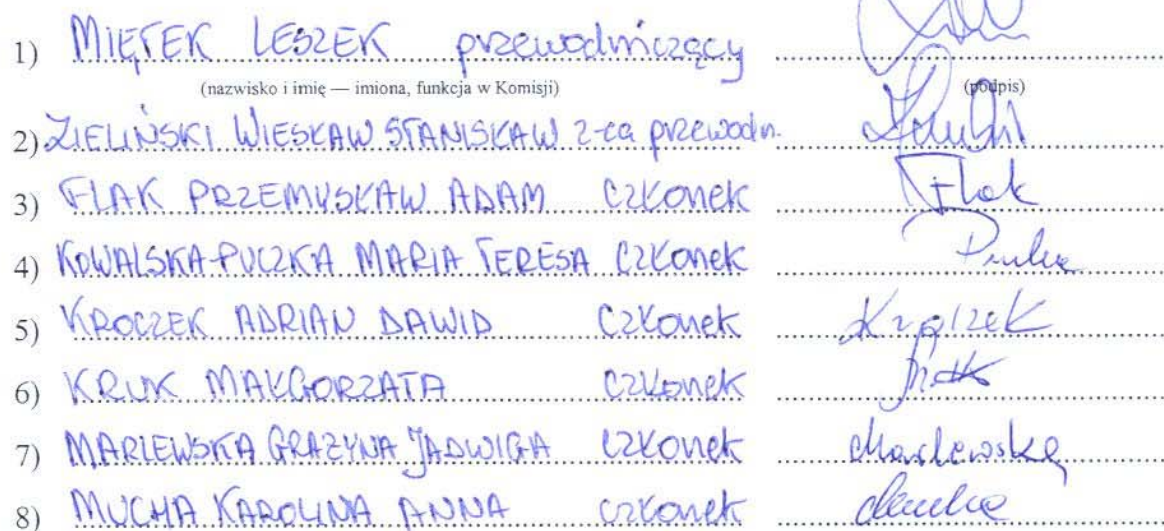 1) MIĘTEK LESZEK przewodniczący
(nazwisko i imię — imiona, funkcja w Komisji) (podpis)
2) ZIELIŃSKI WIESŁAW STANISŁAW z-ca przewodn.
3) FLAK PRZEMYSŁAW ADAM członek Flak
4) KOWALSKA-PUCZKA MARIA TERESA członek
5) KROCZEK ADRIAN DAWID członek Kroczek
6) KRUK MAŁGORZATA członek
7) MARLEWSKA GRAŻYNA JADWIGA członek Marlewska
8) MUCHA KAROLINA ANNA członek Mucha